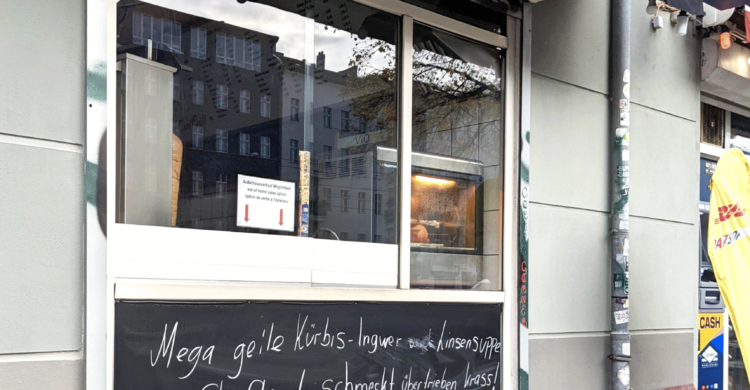 Außerhausverkauf Möglichkeit
out-of-home sales option
option de vente à l'extérieur
Mega geile Kürbis-Ingwer Linsensuppe
schmeckt übertrieben krass!
DHL
CASH